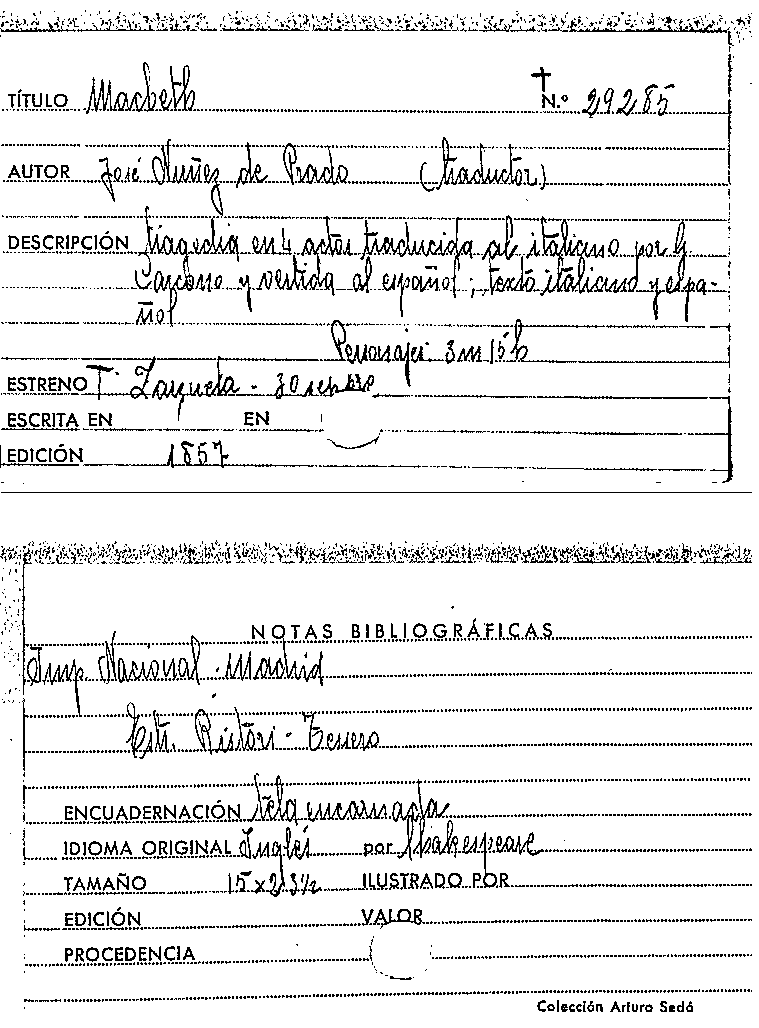 TÍTULO Macbeth N.º 29285
AUTOR José Nuñez de Prado (traductor)
DESCRIPCIÓN tragedia en 4 actos traducida al italiano por G.
Carcano y vertida al español; texto italiano y espa-
ñol
Personajes: 3m 15h
ESTRENO T. Zarzuela - 30 sepbre
ESCRITA EN EN
EDICIÓN 1857
NOTAS BIBLIOGRÁFICAS
Imp. Nacional - Madrid
Estr. Ristori -
ENCUADERNACIÓN tela encarnada
IDIOMA ORIGINAL Inglés por Shakespeare
TAMAÑO 15 x 23½ ILUSTRADO POR
EDICIÓN VALOR
PROCEDENCIA
Colección Arturo Sedó